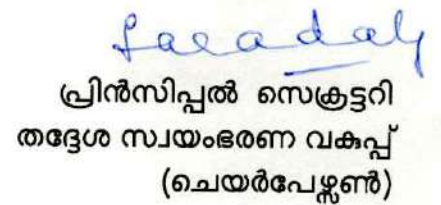 പ്രിൻസിപ്പൽ സെക്രട്ടറി
തദ്ദേശ സ്വയംഭരണ വകുപ്പ്
(ചെയർപേഴ്സൺ)